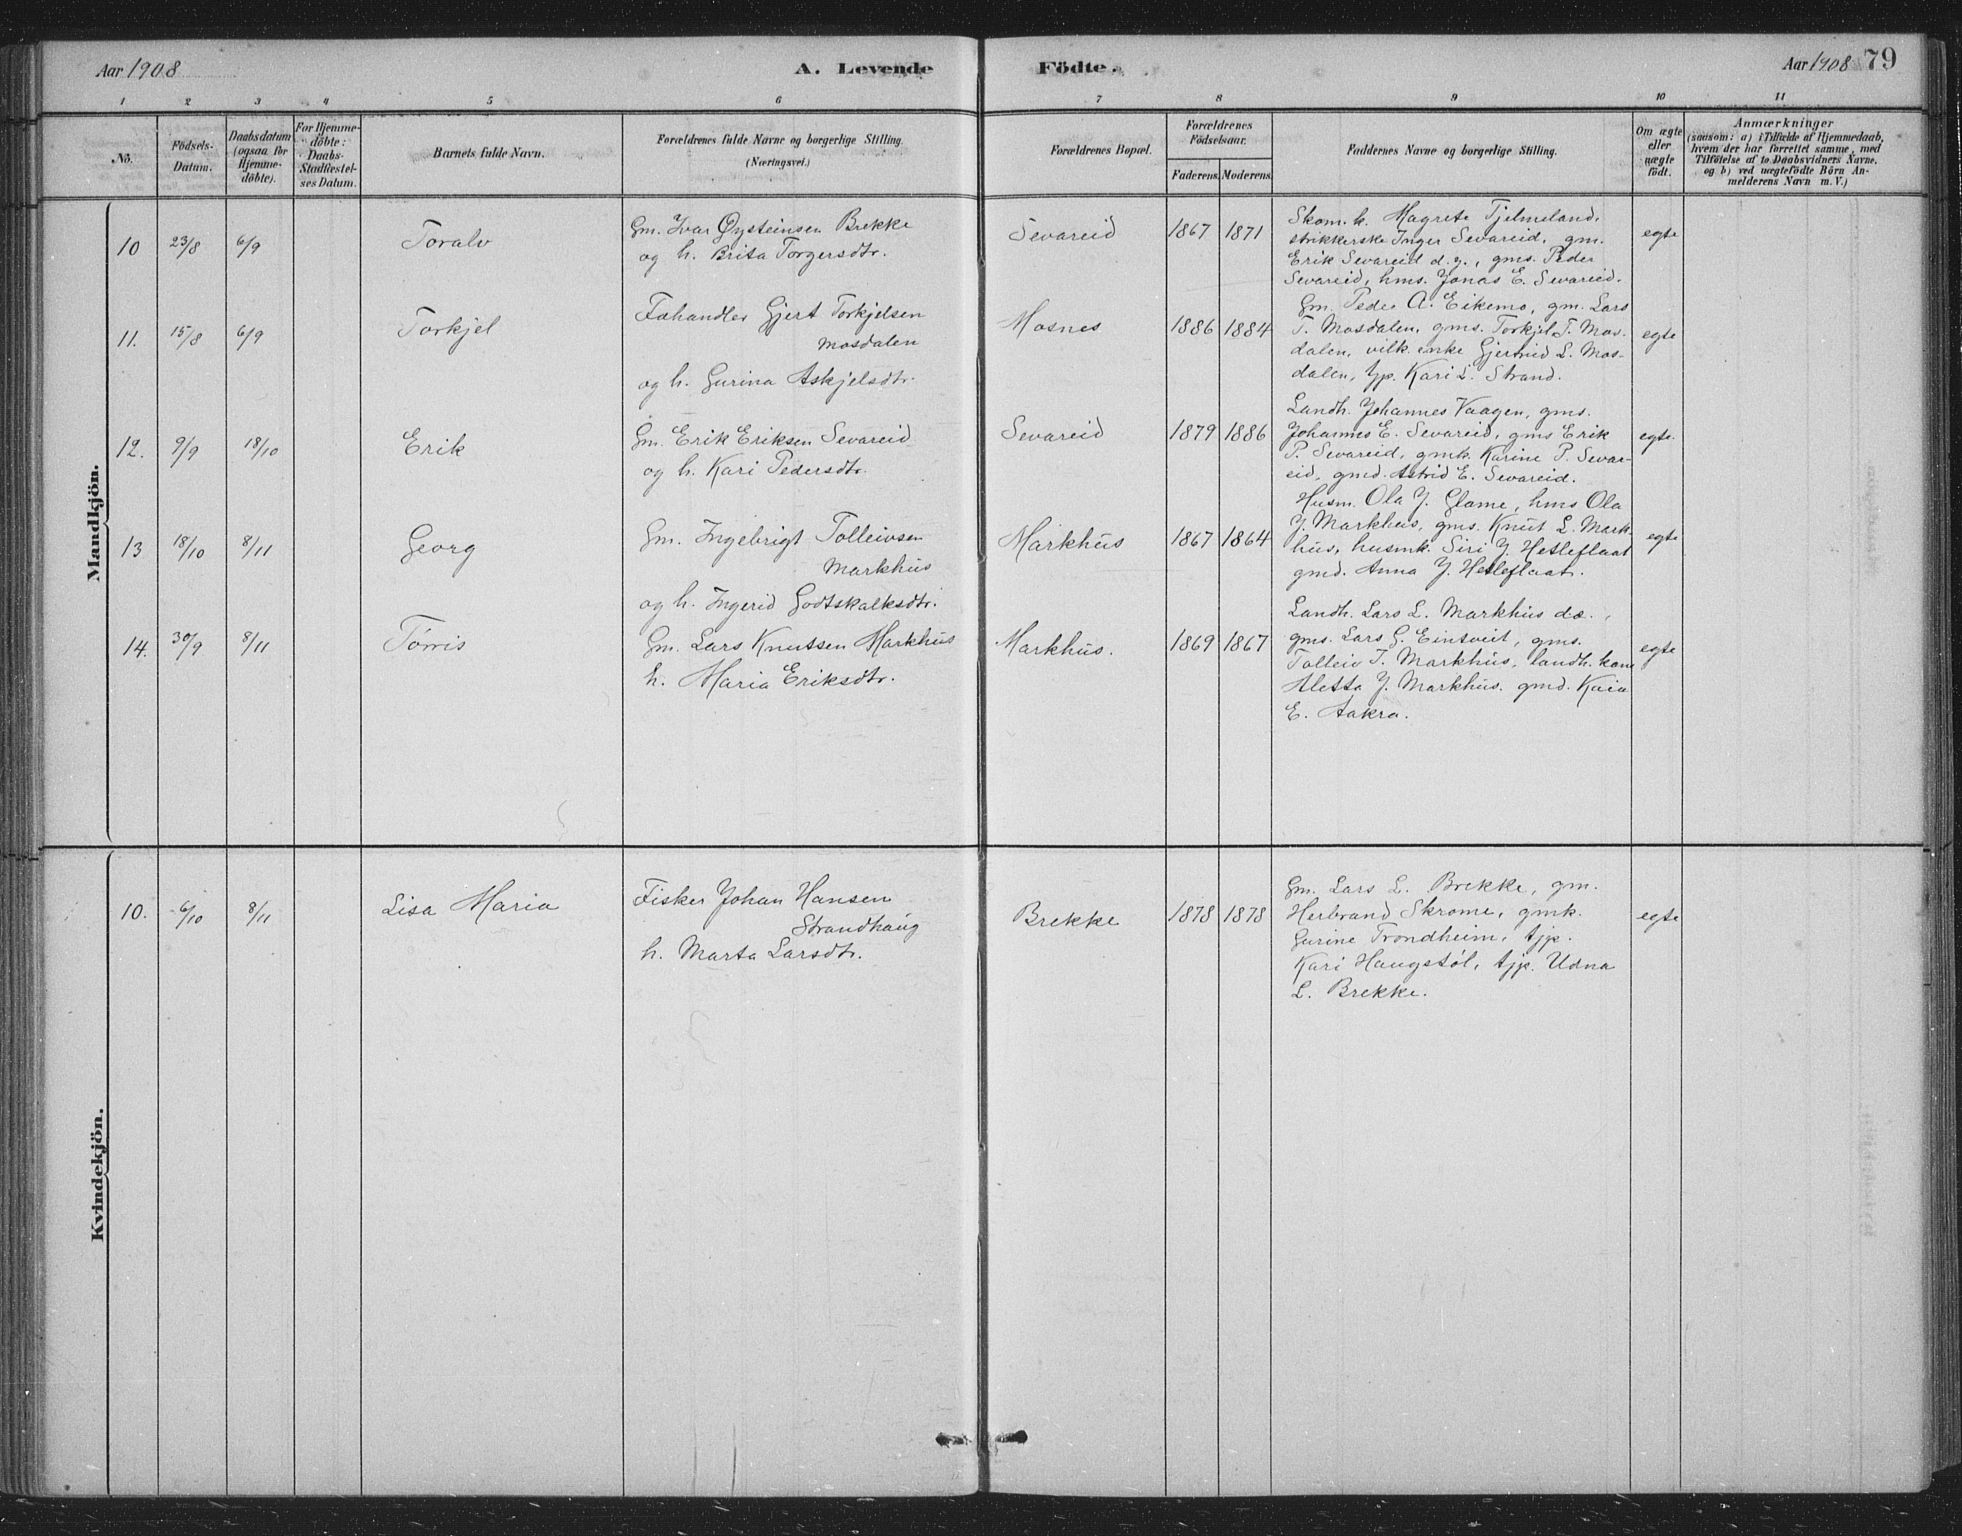 Aar 1908
A. Levende Födte.
Aar 1908 79
1 2 3 4 5 6 7 8 9 10 11
No.
Födsels-
Datum.
Daabsdatum
(ogsaa for
Hjemme-
döbte).
For Hjemme-
döbte:
Daabs-
Stadfæstel-
ses Datum.
Barnets fulde Navn.
Forældrenes fulde Navne og borgerlige Stilling.
(Næringsvei.)
Forældrenes Bopæl.
Forældrenes
Födselsaar.
Faderens. Moderens.
Faddernes Navne og borgerlige Stilling.
Om ægte
eller
uægte
födt.
Anmærkninger
(saasom: a) i Tilfælde af Hjemmedaab,
hvem der har forrettet samme, med
Tilföielse af to Daabsvidners Navne,
og b) ved uægtefödte Börn An-
melderens Navn m. V.)
Mandkjön.
10 23/8 6/9 Toralv
Gm. Ivar Øysteinsen Brekke
og h. Brita Torgersdtr.
Sevareid 1867 1871
Skom. k. Magrete Tjelmeland,
strikkerske Inger Sevareid, gm.
Erik Sevareid d. y., gms. Peder
Sevareid, hms. Jonas E. Sevareid.
egte
11. 15/8 6/9 Torkjel
Fæhandler Gjert Torkjelsen
Mosdalen
og h. Gurina Askjelsdtr.
Mosnes 1886 1884
Gm. Peder A. Eikemo, gm. Lars
T. Mosdalen, gms. Torkjel T. Mos-
dalen, vilk. enke Gjertrud L. Mos-
dalen, tjp. Kari L. Strand.
egte
12. 9/9 18/10 Erik
Gm. Erik Eriksen Sevareid
og h. Kari Pedersdtr.
Sevareid 1879 1886
Landh. Johannes Vaagen, gms.
Johannes E. Sevareid, gms Erik
P. Sevareid, gmk. Karine P. Sevar-
eid, gmd. Astrid E. Sevareid.
egte.
13 18/10 8/11 Georg
Gm. Ingebrigt Tolleivsen
Markhus
og h. Ingerid Godtskalksdtr.
Markhus 1867 1864
Husm. Ola J. Glame, hms Ola
J. Markhus, gms. Knut L. Mark-
hus, husmk. Siri J. Hetleflaat
gmd. Anna J. Hetleflaat.
egte
14. 30/9 8/11 Tørris
Gm. Lars Knutsen Markhus
h. Maria Eriksdtr.
Markhus. 1869 1867
Landh. Lars L. Markhus d.æ.,
gms. Lars G. Eintveit, gms.
Tolleiv T. Markhus, landh. kone
Aletta J. Markhus. gmd. Kaia
E. Aakra.
egte
Kvindekjön.
10. 6/10 8/11 Lisa Maria
Fisker Johan Hansen
Strandhaug
h. Marta Larsdtr.
Brekke 1878 1878
Gm. Lars L. Brekke, gm.
Herbrand Skrome, gmk.
Gurine Trondheim, tjp.
Kari Haugstøl, tjp. Udna
L. Brekke.
egte